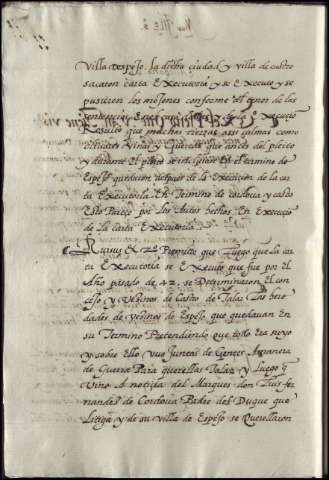 Villa Despejo. La dicha ciudad y villa de castro
sacaron carta Executoria y se Executo y se
pusieron los mojones conforme al tenor de las
sentencias En la Execucion
Resulto que muchas tierras assi calmas como
olivares Vinas y Guertas que antes del pleito
y durante el pleito En el termino de
Espejo quedaron despues de la Execucion de la car
ta Executoria. En Termino de cordova y castro
Esto Parece por los Autos hechos En Execucio
de la carta Executoria.
Rursus Et 2º Premito que Luego que La car
ta Executoria se Executo que fue por El
Año pasado de 42. se Determinaron El con
cejo y Vezinos de Castro de Talar Las here
dades de vezinos de Espejo que quedavan En
su Termino Pretendiendo que todo Era suyo
y sobre Ello uvo Juntas de Gentes A manera
de Guerra Para querellas Talar y Luego q
Vino A noticia del Marques don Luis fer
nandes de Cordova Padre del Duque que
Litiga y de su villa de Espejo se Querellaron